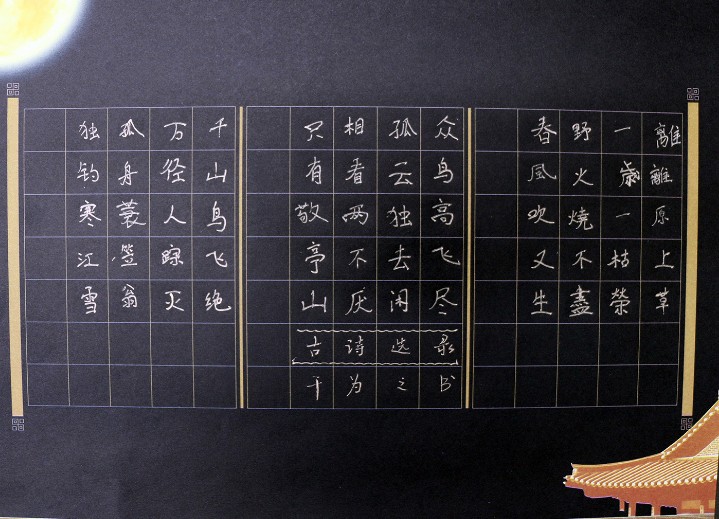 離離原上草
一歲一枯榮
野火燒不盡
春風吹又生
众鸟高飞尽
孤云独去闲
相看两不厌
只有敬亭山
古诗选录
为之书
千山鸟飞绝
万径人踪灭
孤舟蓑笠翁
独钓寒江雪